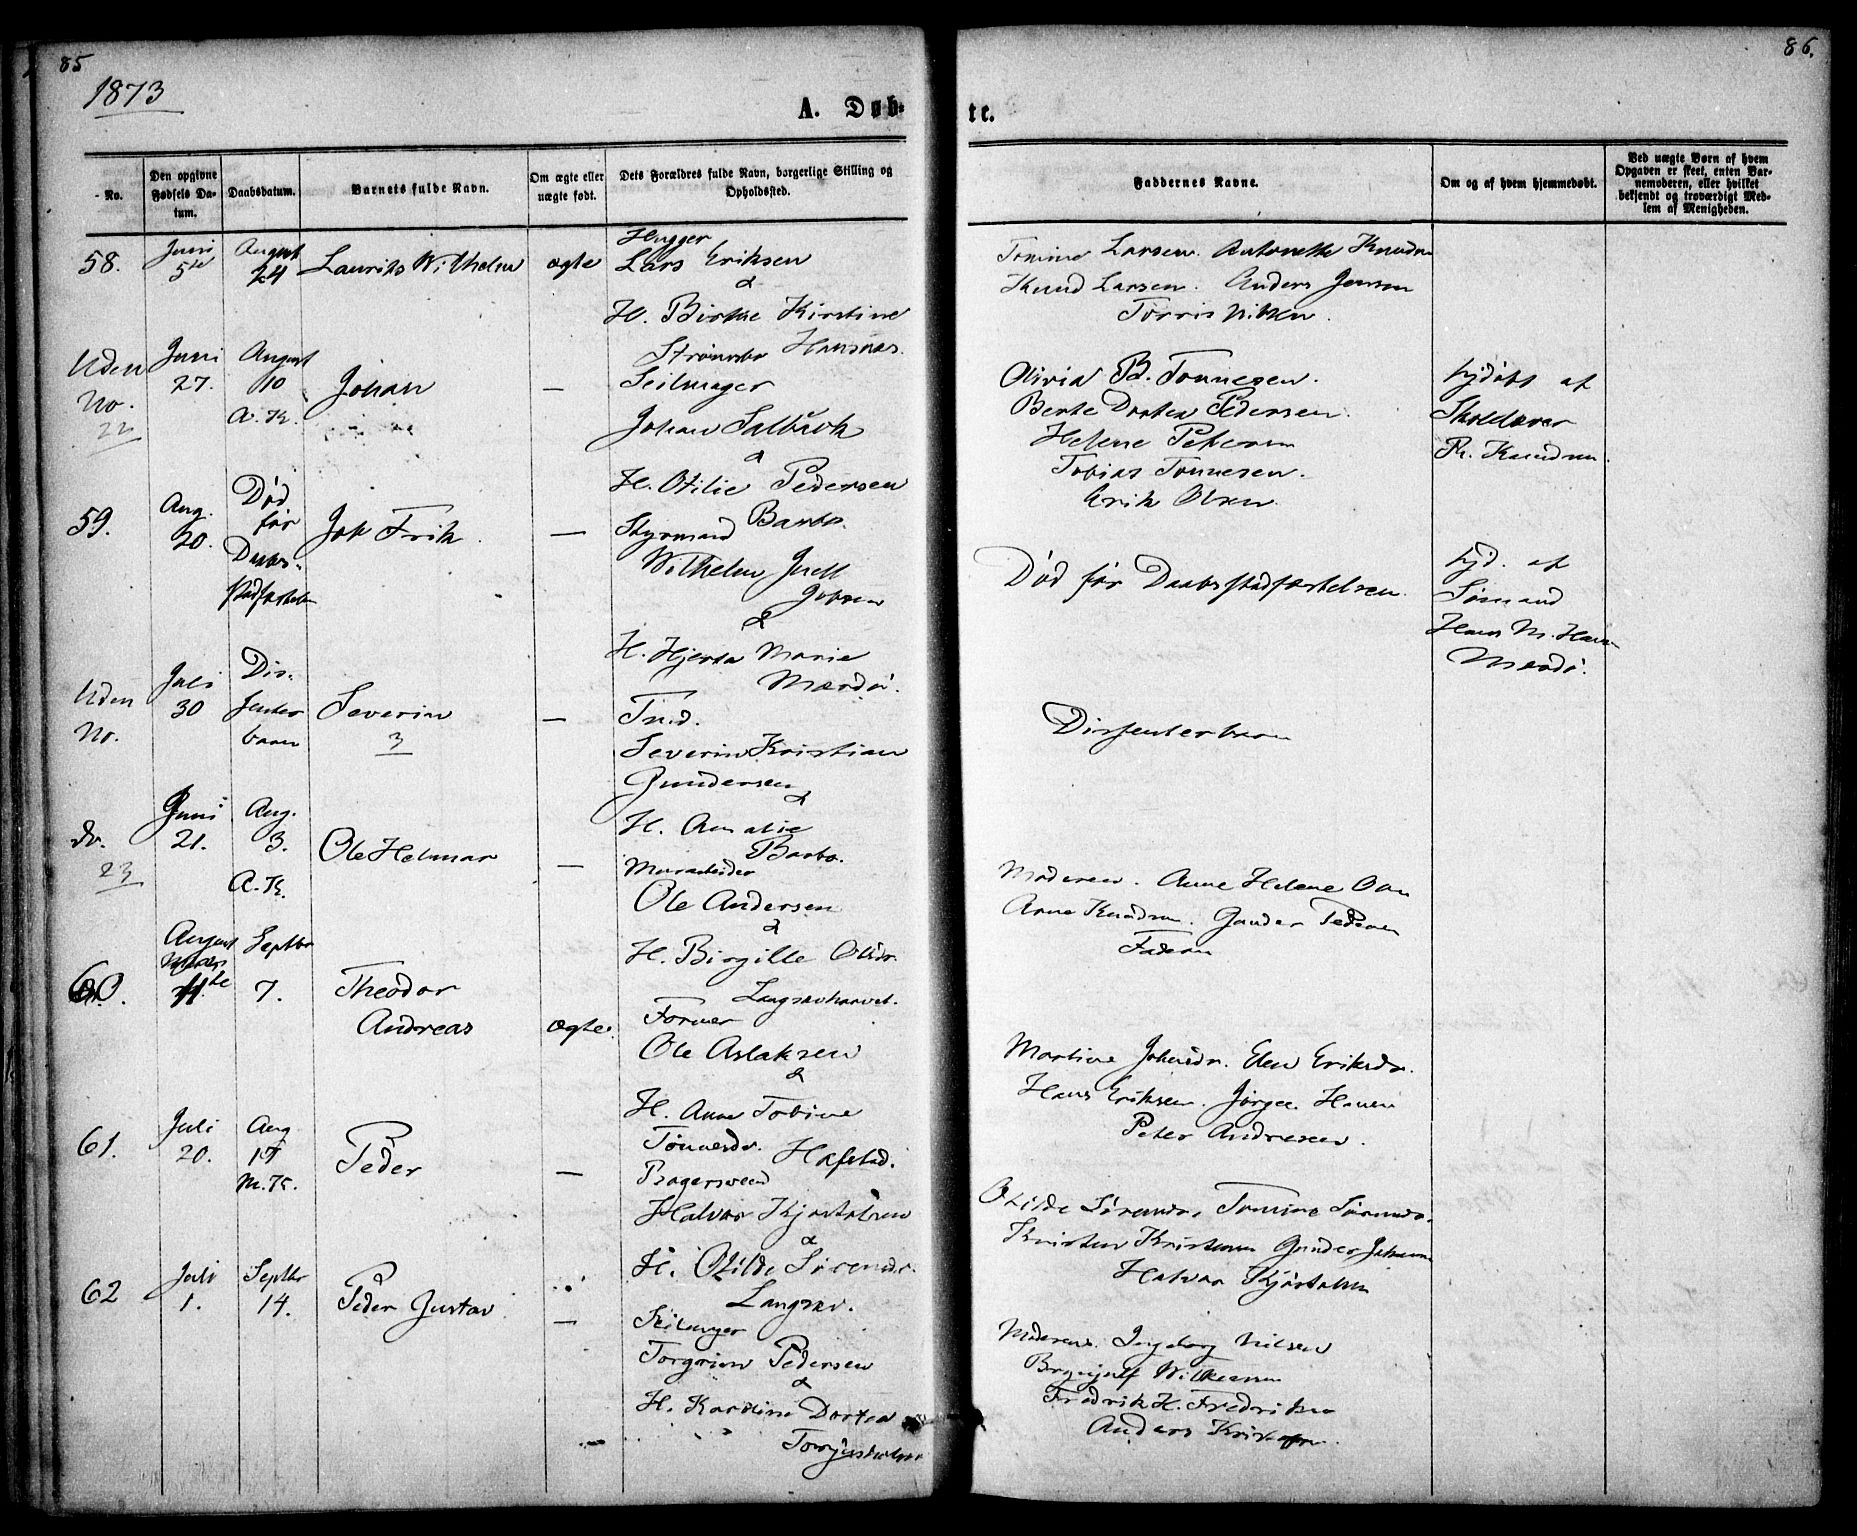 85
86.
1873
A. Døb-
te.
No.
Den opgivne Fødsels Da-
tum.
Daabsdatum.
Barnets fulde Navn.
Om ægte eller
uægte født.
Dets Forældres fulde Navn, borgerlige Stilling og
Opholdssted.
Faddernes Navne.
Om og af hvem hjemmedøbt.
Ved uægte Børn af hvem
Opgaven er skeet, enten Bar-
nemoderen, eller hvilket
bekjendt og troværdigt Med-
lem af Menigheden.
58.
Juni
5te
August
24
Laurits Wilhelm
ægte
Hugger
Lars Eriksen
&
H. Birthe Kirstine
Strømsbo
Tomine Larsen. Antonette Knudsn
Knud Larsen. Anders Jensen
Uden
No.
22
Juni
27.
August
10
A. K.
Johan
—
Seilmager
Johan
&
H. Otilie Pedersen
Barbo.
Olivia B. Tønnesen.
Berte Dortea Pedersen.
Helene Petersen
Tobias Tønnesen.
Erik Olsen
hjdøbt af
Skolelærer
Knudsen.
59.
Aug.
20.
Død
før
Daabs-
stadfæstelsen
Joh Frik.
—
Styrmand
Wilhelm Juell
&
H. Hjerta Marie
Mærdø.
Død før Daabsstadfæstelsen.
hjd. af
Sømand
Hans M. Hans
Mærdø.
Uden
No.
Juli
30
Dis-
senter
barn
Severin
3
—
Severin Kristian
Gundersen
&
H. Amalie
Barbo.
Dissenterbarn
do.
23
Juni
21.
Aug.
3.
A. K.
Ole Helmar
—
Murarbeider
Ole Andersen
&
H. Birgitte Olsdr.
Moderen. Anne Helene Olsn
Arne Knudsn. Gunder Pedersen
Faderen
60.
August
Septbr
7.
Theodor
Andreas
ægte.
Former
Ole Aslaksen
&
H. Anne Tobine
Tønnesdr. Hafstad.
Martine Johnsdr. Elen Eriksdr.
Hans Eriksen. Jørgen Hansen
Peter Andresen.
61.
Juli
20.
Aug
17
M. K.
Peder
—
Bagersvend
Halvor Kjøstolsen
&
H. Otilde Sørensdr.
Langsæv.
Otilde Sørensdr. Tomine Sørensdr.
Kristen Kristensen Gunder Johnsen
Halvor Kjøstolsen
62
Juli
1.
Septbr
14.
Peder Gustav
—
Seilmager
Torgrim Pedersen
&
H. Karoline Dortea
Moderen. Ingeborg Nilsen
Brynjulf
Fredrik H. Fredriksen
Anders